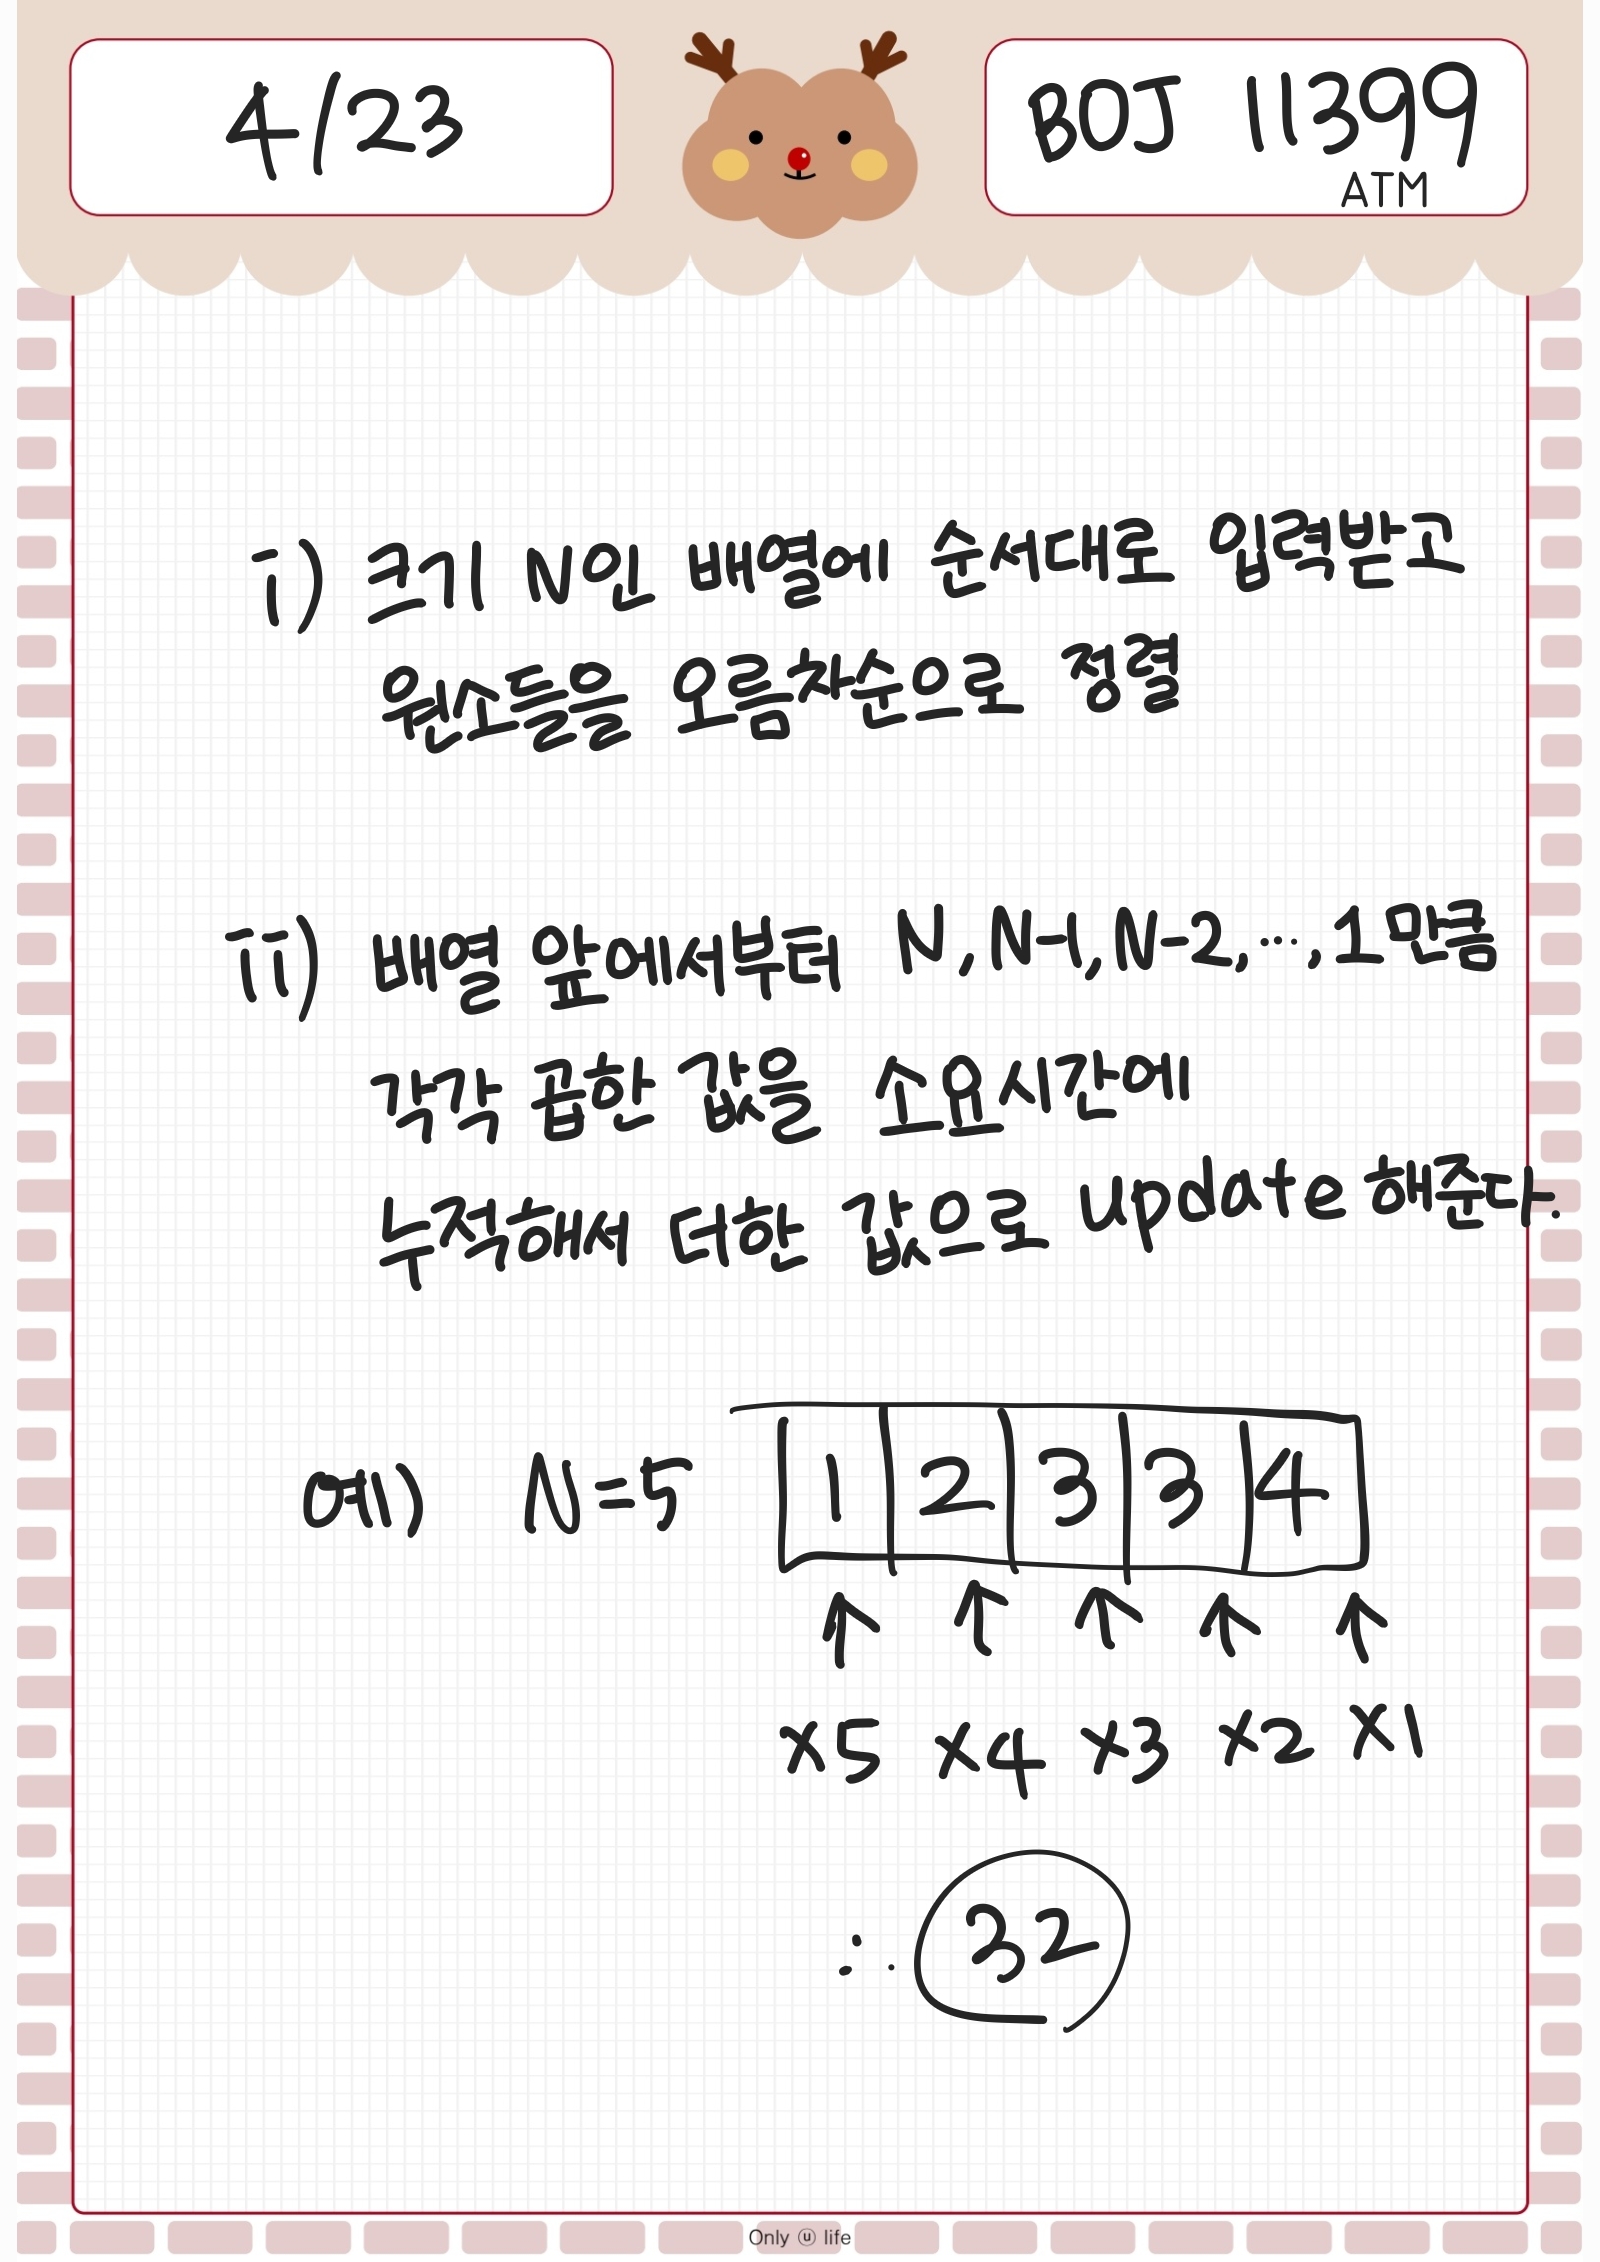 4/23
BOJ 11399
ATM
i) 크기 N인 배열에 순서대로 입력받고
원소들을 오름차순으로 정렬
ii) 배열 앞에서부터 N, N-1, N-2, ..., 1 만큼
각각 곱한 값을 소요시간에
누적해서 더한 값으로 update 해준다.
예) N=5 1 2 3 3 4
↑ ↑ ↑ ↑ ↑
×5 ×4 ×3 ×2 ×1
∴ 32
Only ⓤ life